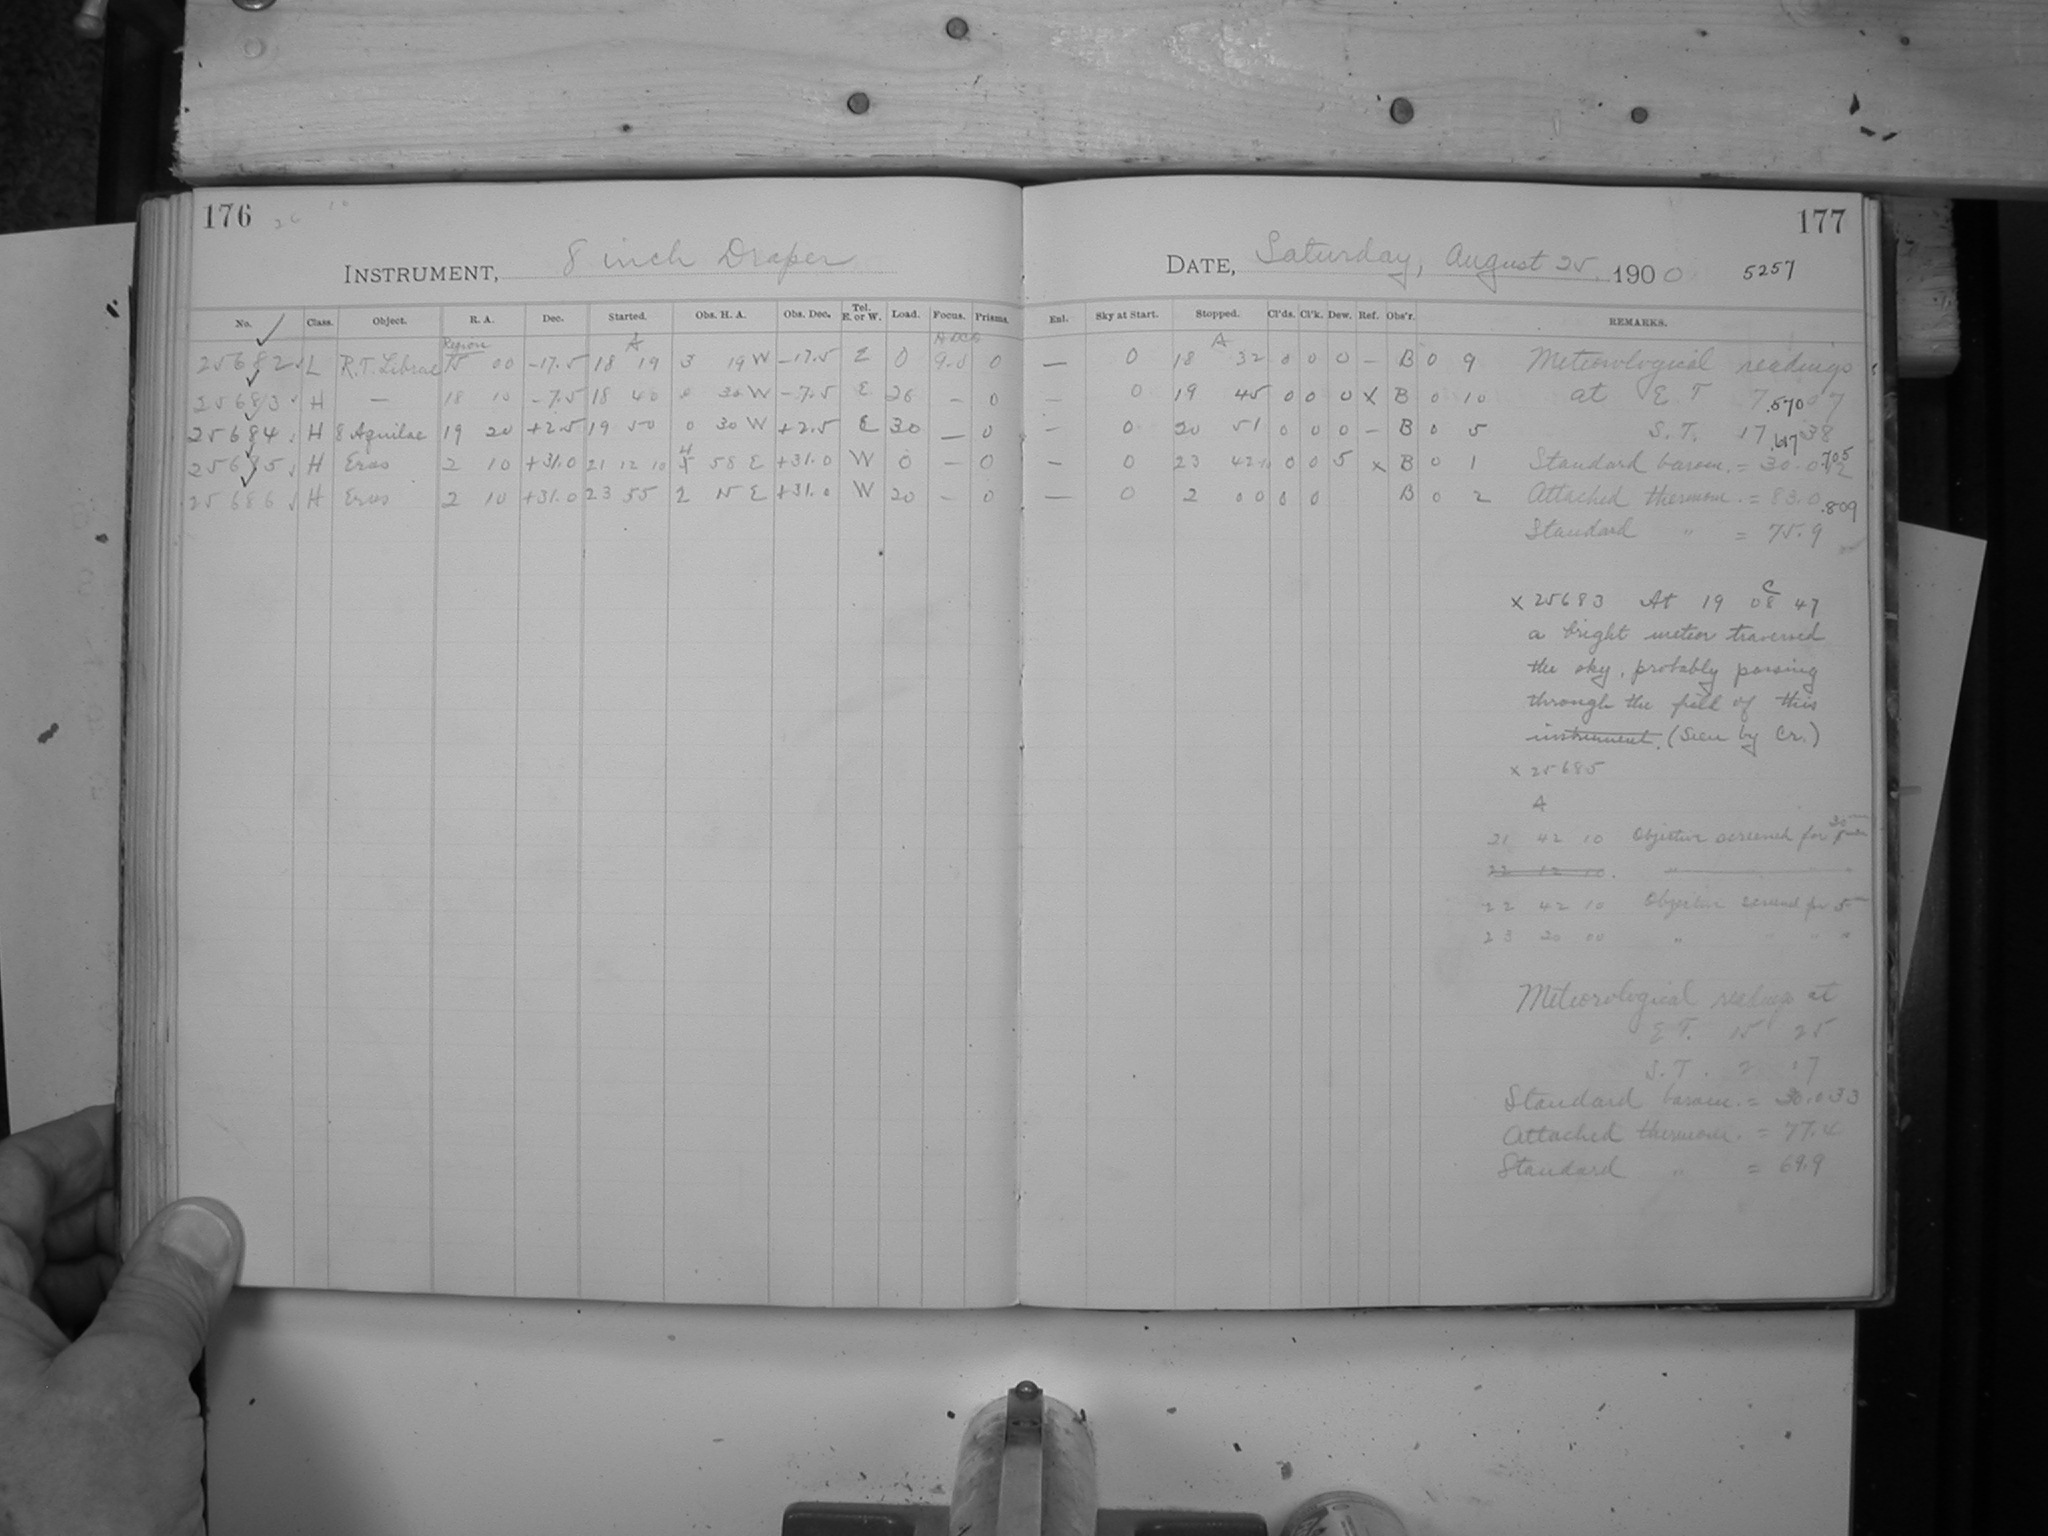 176
177
INSTRUMENT, 8 inch Draper
DATE, Saturday, August 25, 1900 5257
No. Class. Object. R. A. Dec. Started. Obs. H. A. Obs. Dec. Tel. E. or W. Load. Focus. Prisms. Enl. Sky at Start. Stopped. Cl'ds. Cl'k. Dew. Ref. Obs'r. REMARKS.
Region A A
25682 L R.T. Librae 15 00 -17.5 18 19 3 19 W -17.5 E 0 9.0 0 — 0 18 32 0 0 0 - B 0 9 Meteorological readings
25683 H — 18 10 -7.5 18 40 0 30 W -7.5 E 20 - 0 - 0 19 45 0 0 0 X B 0 10 at E T 7 .570 07
25684 H 8 Aquilae 19 20 +2.5 19 50 0 30 W +2.5 E 30 - 0 - 0 20 51 0 0 0 - B 0 5 S. T. 17 .617 38
25685 H Eros 2 10 +31.0 21 12 10 58 E +31.0 W 0 - 0 - 0 23 42 0 0 5 x B 0 1 Standard barom. = 30.0 .705
25686 H Eros 2 10 +31.0 23 55 2 15 E +31.0 W 20 - 0 — 0 2 00 0 0 B 0 2 Attached thermom. = 83.0 .809
Standard " = 75.9
x 25683 At 19 08 47 C
a bright meteor traversed
the sky, probably passing
through the field of this
instrument. (Seen by Cr.)
x 25685
A
21 42 10 Objective screened for 30 m
22 12 10. " "
22 42 10 Objective screened for 5 m
23 20 00 " " " "
Meteorological readings at
E T. 15 25
S. T. 2 57
Standard barom. = 30.033
Attached thermom. = 77.4
Standard " = 69.9